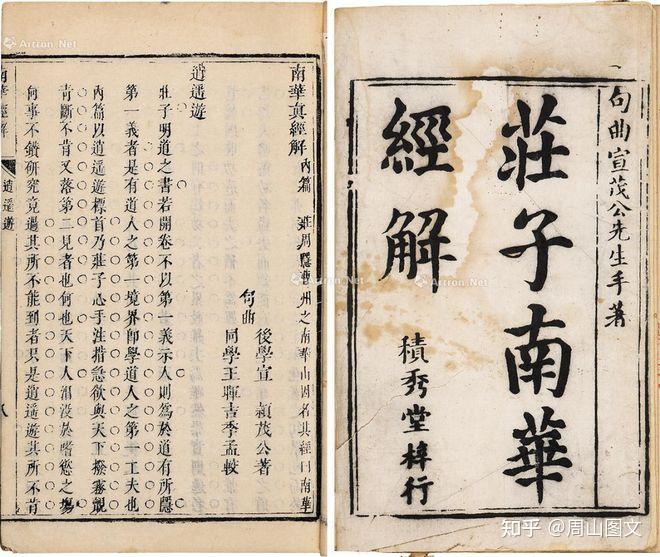 句曲宣茂公先生手著
莊子南華
經解
積秀堂梓行
南華真經解 內篇 莊周隱曹州之南華山因名其經曰南華
後學宣穎茂公著
句曲
同學王暉吉季孟較
逍遥遊
莊子明道之書若開卷不以第一義示人則爲於道有所隱
第一義者是有道人之第一境界即學道人之第一工夫也
內篇以逍遥遊標首乃莊子心手注措急欲與天下撥霧覩
青斷不肯又落第二見者也何也天下人汩沒於嗜慾之塲
何事不鑽研究竟過其所不能到者只是逍遥遊其所不肯
南華經解 逍遥遊
Artron.Net
Artron.Net
Artron.Net
Artron.Net
知乎 @周山图文